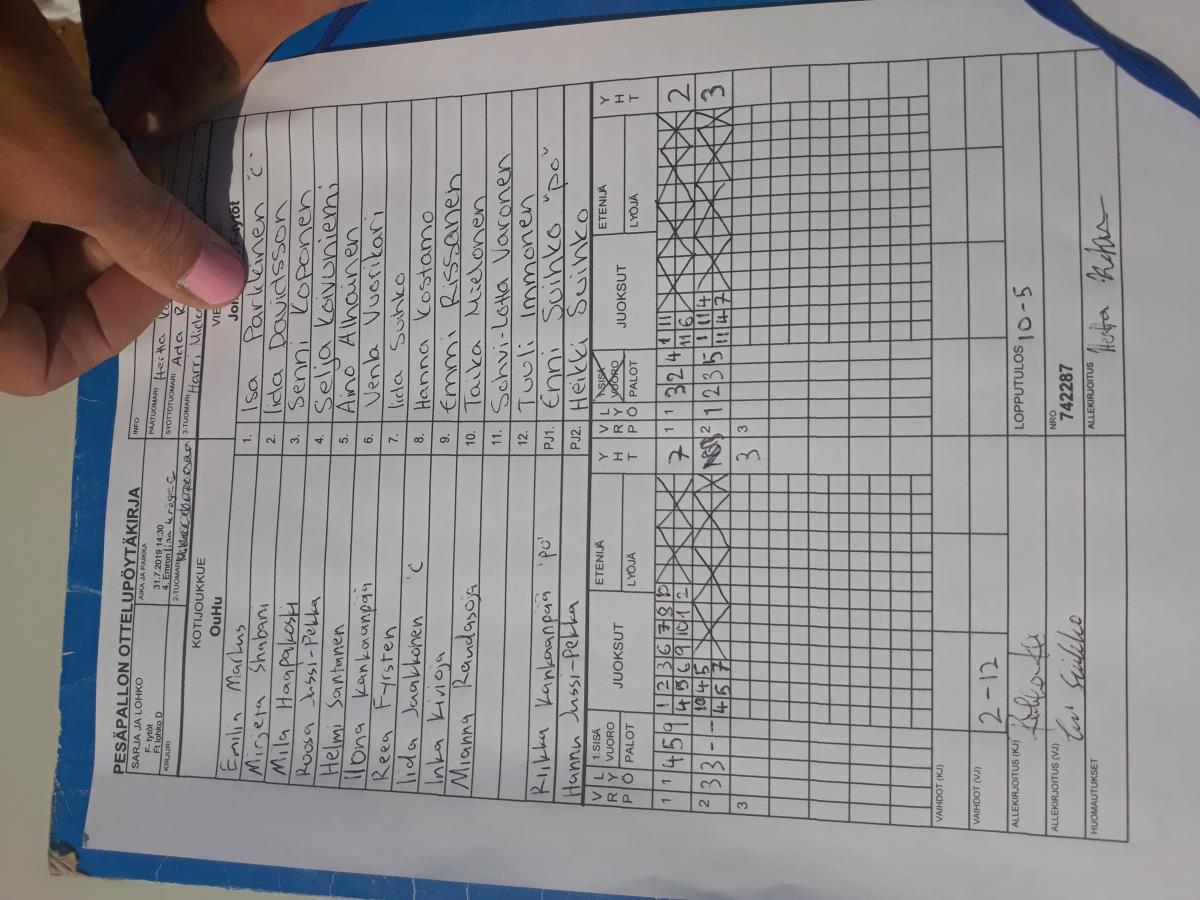 PESÄPALLON OTTELUPÖYTÄKIRJA
SARJA JA LOHKO
F- tytöt
F1 lohko D
AIKA JA PAIKKA
31.7.2019 14:30
INFO
PÄÄTUOMARI Hertta
SYÖTTÖTUOMARI Ada
KIRJURI
2-TUOMARI
3-TUOMARI Harri
KOTIJOUKKUE
OuHu
Emilia Markus 1. Isa Parkkinen 'c'
Mirjeta Shabani 2. Iida Davidsson
Mila Haapakoski 3. Senni Koponen
Roosa Jussi-Pekka 4. Selja Koivuniemi
Helmi Santanen 5. Aino Alhainen
Ilona Kankaanpää 6. Venla Vuorikari
Reea Fyrsten 7. Iida Suihko
Iida Jaakkonen 'c' 8. Hanna Kostamo
Inka Kivioja 9. Emmi Rissanen
Mianna Raudasoja 10. Taika Mielonen
11. Sohvi-Lotta Varonen
12. Tuuli Immonen
Riikka Kankaanpää 'po' PJ1. Enni Suihko "po"
Hannu Jussi-Pekka PJ2. Heikki Suihko
V R P L Y Ö 1.SISÄ VUORO PALOT JUOKSUT ETENIJÄ LYÖJÄ Y H T V R P L Y Ö 1.SISÄ VUORO PALOT JUOKSUT ETENIJÄ LYÖJÄ Y H T
1 1 4 5 9 1 2 3 6 7 8 10 7 1 1 3 2 4 1 11 2
4 5 6 9 10 1 2 11 6
2 3 3 - - 10 4 5 2 1 2 3 5 1 11 4 3
4 5 7 11 4 7
3 3 3
VAIHDOT (KJ)
VAIHDOT (VJ) 2-12
ALLEKIRJOITUS (KJ) LOPPUTULOS 10-5
ALLEKIRJOITUS (VJ) NRO
742287
HUOMAUTUKSET ALLEKIRJOITUS Hertta